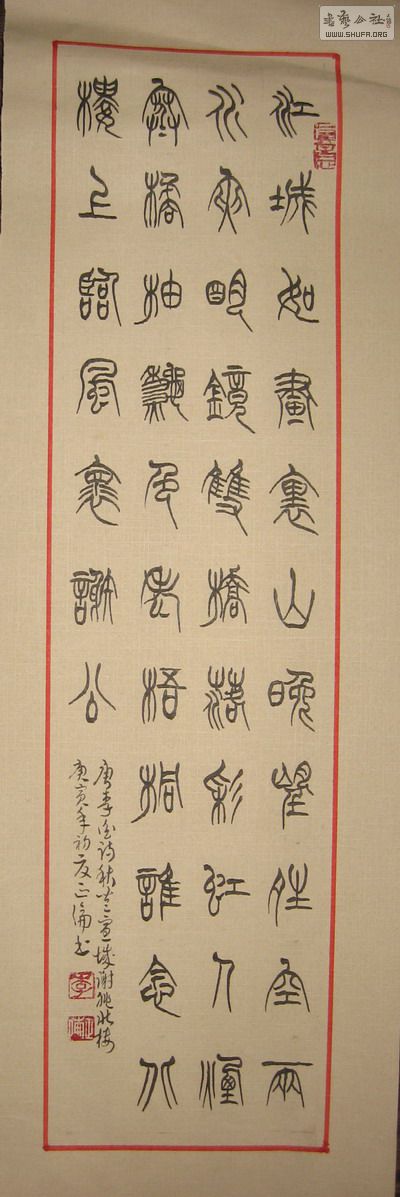 書藝公社
WWW.SHUFA.ORG
江城如畫裏山晚望晴空兩
水夾明鏡雙橋落彩虹人煙
寒橘柚秋色老梧桐誰念北
樓上臨風褱謝公
唐李白詩秋登宣城謝朓北樓
庚寅年初夏正倫書
李